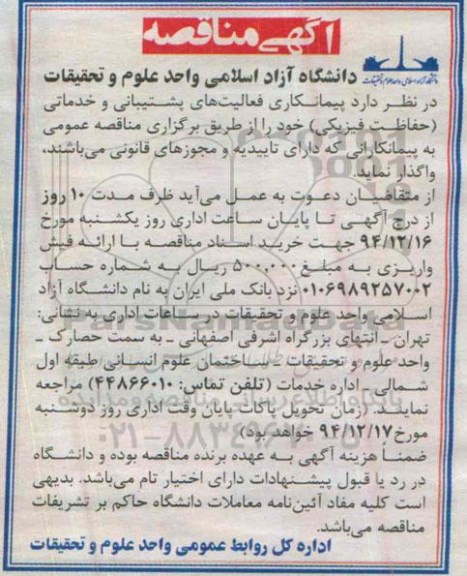 آگهی مناقصه
دانشگاه آزاد اسلامی واحد علوم و تحقیقات
در نظر دارد پیمانکاری فعالیت‌های پشتیبانی و خدماتی
(حفاظت فیزیکی) خود را از طریق برگزاری مناقصه عمومی
به پیمانکارانی که دارای تاییدیه و مجوزهای قانونی می‌باشند،
واگذار نماید.
از متقاضیان دعوت به عمل می‌آید ظرف مدت ۱۰ روز
از درج آگهی تا پایان ساعت اداری روز یکشنبه مورخ
۹۴/۱۲/۱۶ جهت خرید اسناد مناقصه با ارائه فیش
واریزی به مبلغ ۵۰۰,۰۰۰ ریال به شماره حساب
۰۱۰۶۹۸۹۲۵۷۰۰۲ نزد بانک ملی ایران به نام دانشگاه آزاد
اسلامی واحد علوم و تحقیقات در ساعات اداری به نشانی:
تهران ـ انتهای بزرگراه اشرفی اصفهانی ـ به سمت حصارک ـ
واحد علوم و تحقیقات ـ ساختمان علوم انسانی طبقه اول
شمالی ـ اداره خدمات (تلفن تماس: ۴۴۸۶۶۰۱۰) مراجعه
نمایند. (زمان تحویل پاکات پایان وقت اداری روز دوشنبه
مورخ ۹۴/۱۲/۱۷ خواهد بود)
ضمناً هزینه آگهی به عهده برنده مناقصه بوده و دانشگاه
در رد یا قبول پیشنهادات دارای اختیار تام می‌باشد. بدیهی
است کلیه مفاد آئین‌نامه معاملات دانشگاه حاکم بر تشریفات
مناقصه می‌باشد.
اداره کل روابط عمومی واحد علوم و تحقیقات
ParsNamadData
پایگاه اطلاع رسانی مناقصه و مزایده